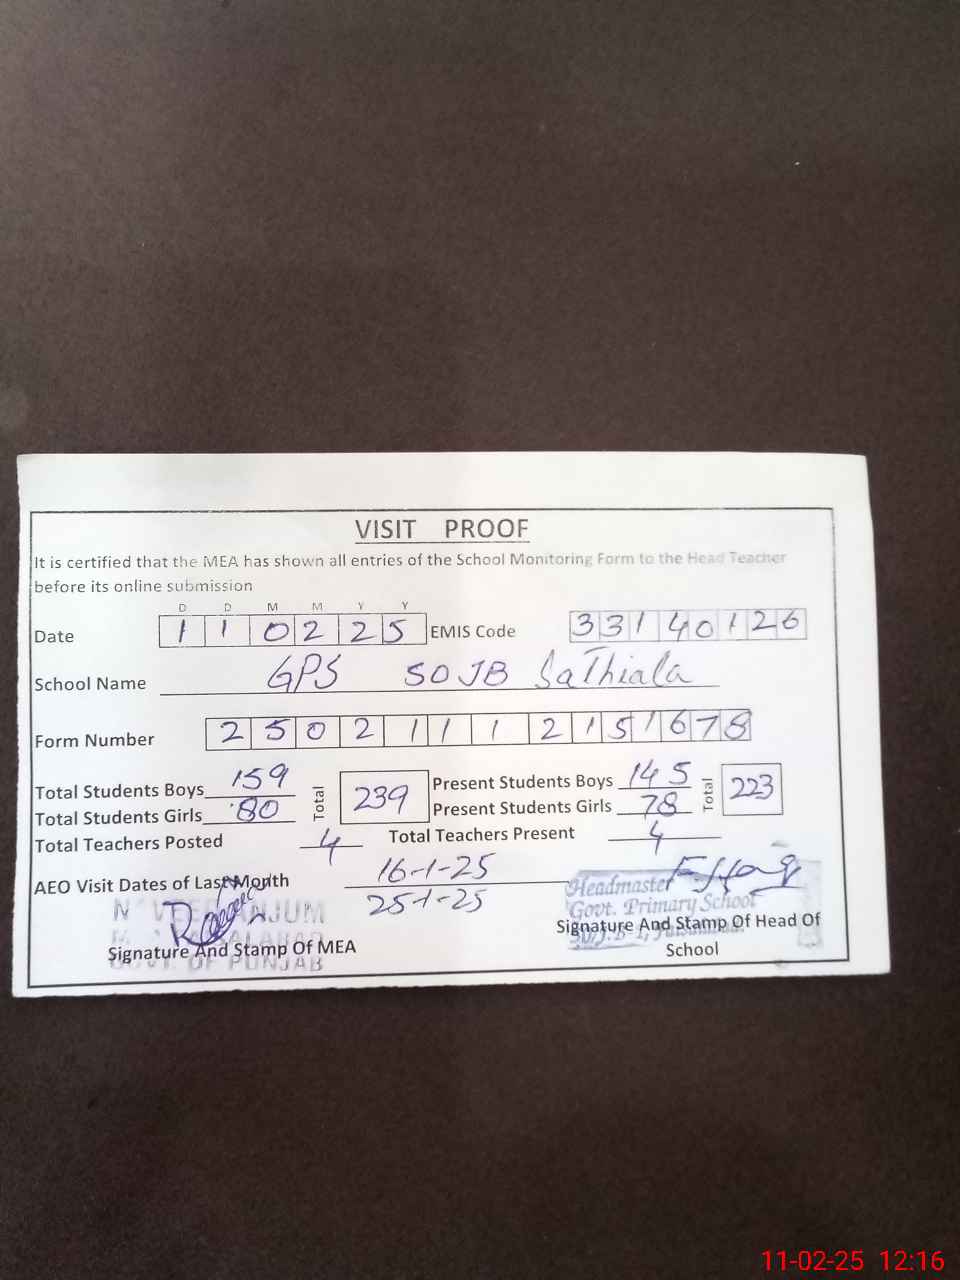 VISIT PROOF
It is certified that the MEA has shown all entries of the School Monitoring Form to the Head Teacher
before its online submission
D D M M Y Y
Date 1 1 0 2 2 5 EMIS Code 3 3 1 4 0 1 2 6
School Name GPS 50 JB Sathiala
Form Number 2 5 0 2 1 1 1 2 1 5 1 6 7 8
Total Students Boys 159 Total 239 Present Students Boys 145 Total 223
Total Students Girls 80 Present Students Girls 78
Total Teachers Posted 4 Total Teachers Present 4
AEO Visit Dates of Last Month 16-1-25
25-1-25
Headmaster
Govt. Primary School
ANJUM
Signature And Stamp Of MEA
GOVT. OF PUNJAB
Signature And Stamp Of Head Of
School
11-02-25 12:16